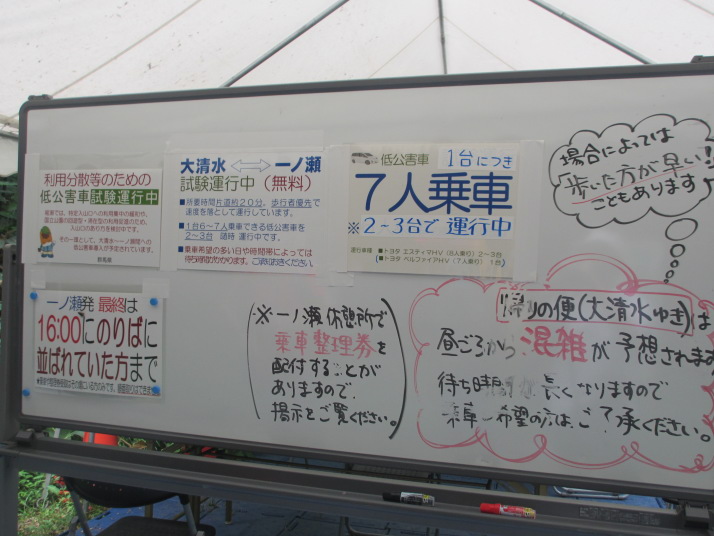 利用分散等のための
低公害車試験運行中
群馬県
大清水 ⇔ 一ノ瀬
試験運行中（無料）
■所要時間片道約20分。歩行者優先で
速度を落として運行しています。
■1台6～7人乗車できる低公害車を
2～3台 随時 運行中です。
■乗車希望の多い日や時間帯によっては
待ち時間がかかります。ご承知おきください。
低公害車 1台につき
7人乗車
※2～3台で 運行中
運行車種 ■トヨタ エスティマHV（8人乗り）2～3台
■トヨタ ベルファイアHV（7人乗り） 1台
場合によっては
「歩いた方が早い!」
こともあります
一ノ瀬発 最終は
16:00にのりばに
並ばれていた方まで
※一ノ瀬休憩所で
乗車整理券を
配付することが
ありますので、
掲示をご覧ください。
帰りの便(大清水ゆき)は
昼ごろから 混雑が予想されます
待ち時間が 長くなりますので
ご了承ください。